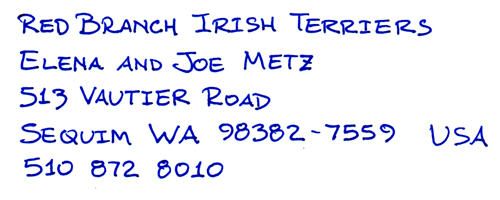 RED BRANCH IRISH TERRIERS
ELENA AND JOE METZ
513 VAUTIER ROAD
SEQUIM WA 98382-7559 USA
510 872 8010